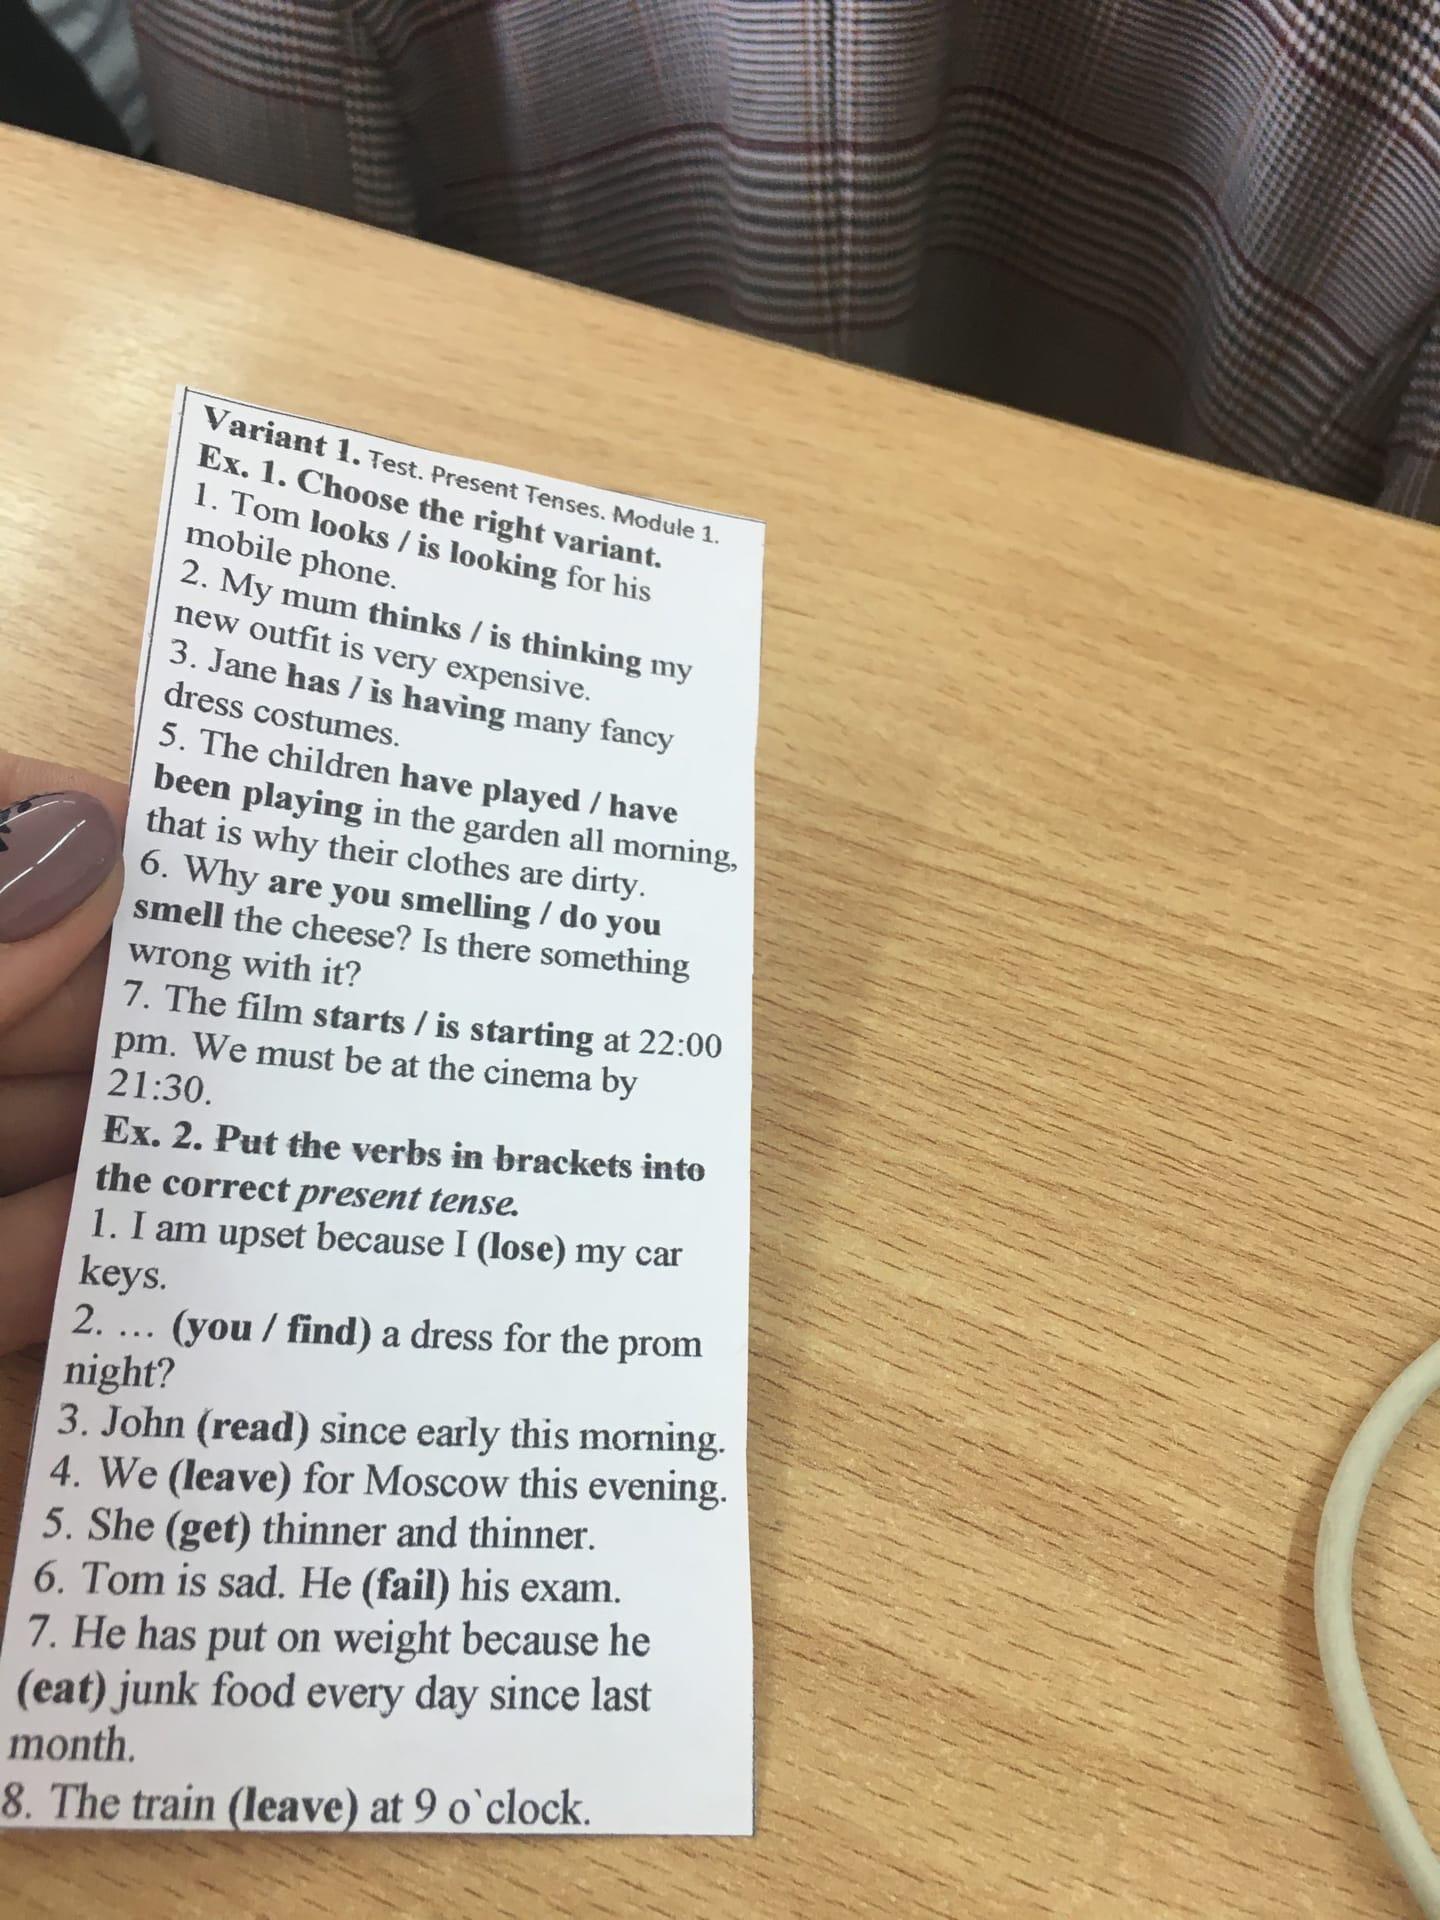 Variant 1. Test. Present Tenses. Module 1.
Ex. 1. Choose the right variant.
1. Tom looks / is looking for his
mobile phone.
2. My mum thinks / is thinking my
new outfit is very expensive.
3. Jane has / is having many fancy
dress costumes.
5. The children have played / have
been playing in the garden all morning,
that is why their clothes are dirty.
6. Why are you smelling / do you
smell the cheese? Is there something
wrong with it?
7. The film starts / is starting at 22:00
pm. We must be at the cinema by
21:30.
Ex. 2. Put the verbs in brackets into
the correct present tense.
1. I am upset because I (lose) my car
keys.
2. ... (you / find) a dress for the prom
night?
3. John (read) since early this morning.
4. We (leave) for Moscow this evening.
5. She (get) thinner and thinner.
6. Tom is sad. He (fail) his exam.
7. He has put on weight because he
(eat) junk food every day since last
month.
8. The train (leave) at 9 o`clock.